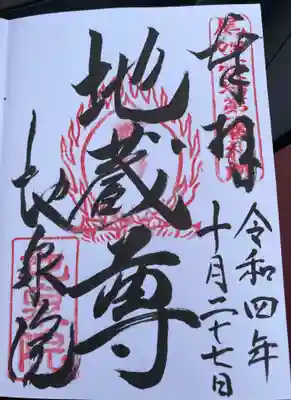 奉拝
令和四年
十月二十七日
地蔵尊
地泉院